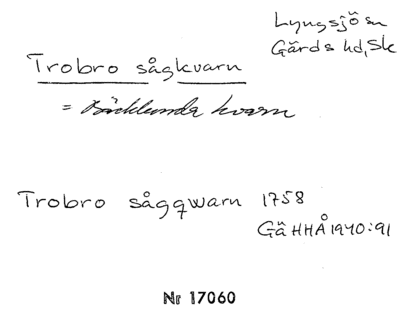 Lyngsjö sn
Gärds hd, Sk
Trobro sågkvarn
= Bäcklunda kvarn
Trobro sågqwarn 1758
Gä HHÅ 1940:91
Nr 17060